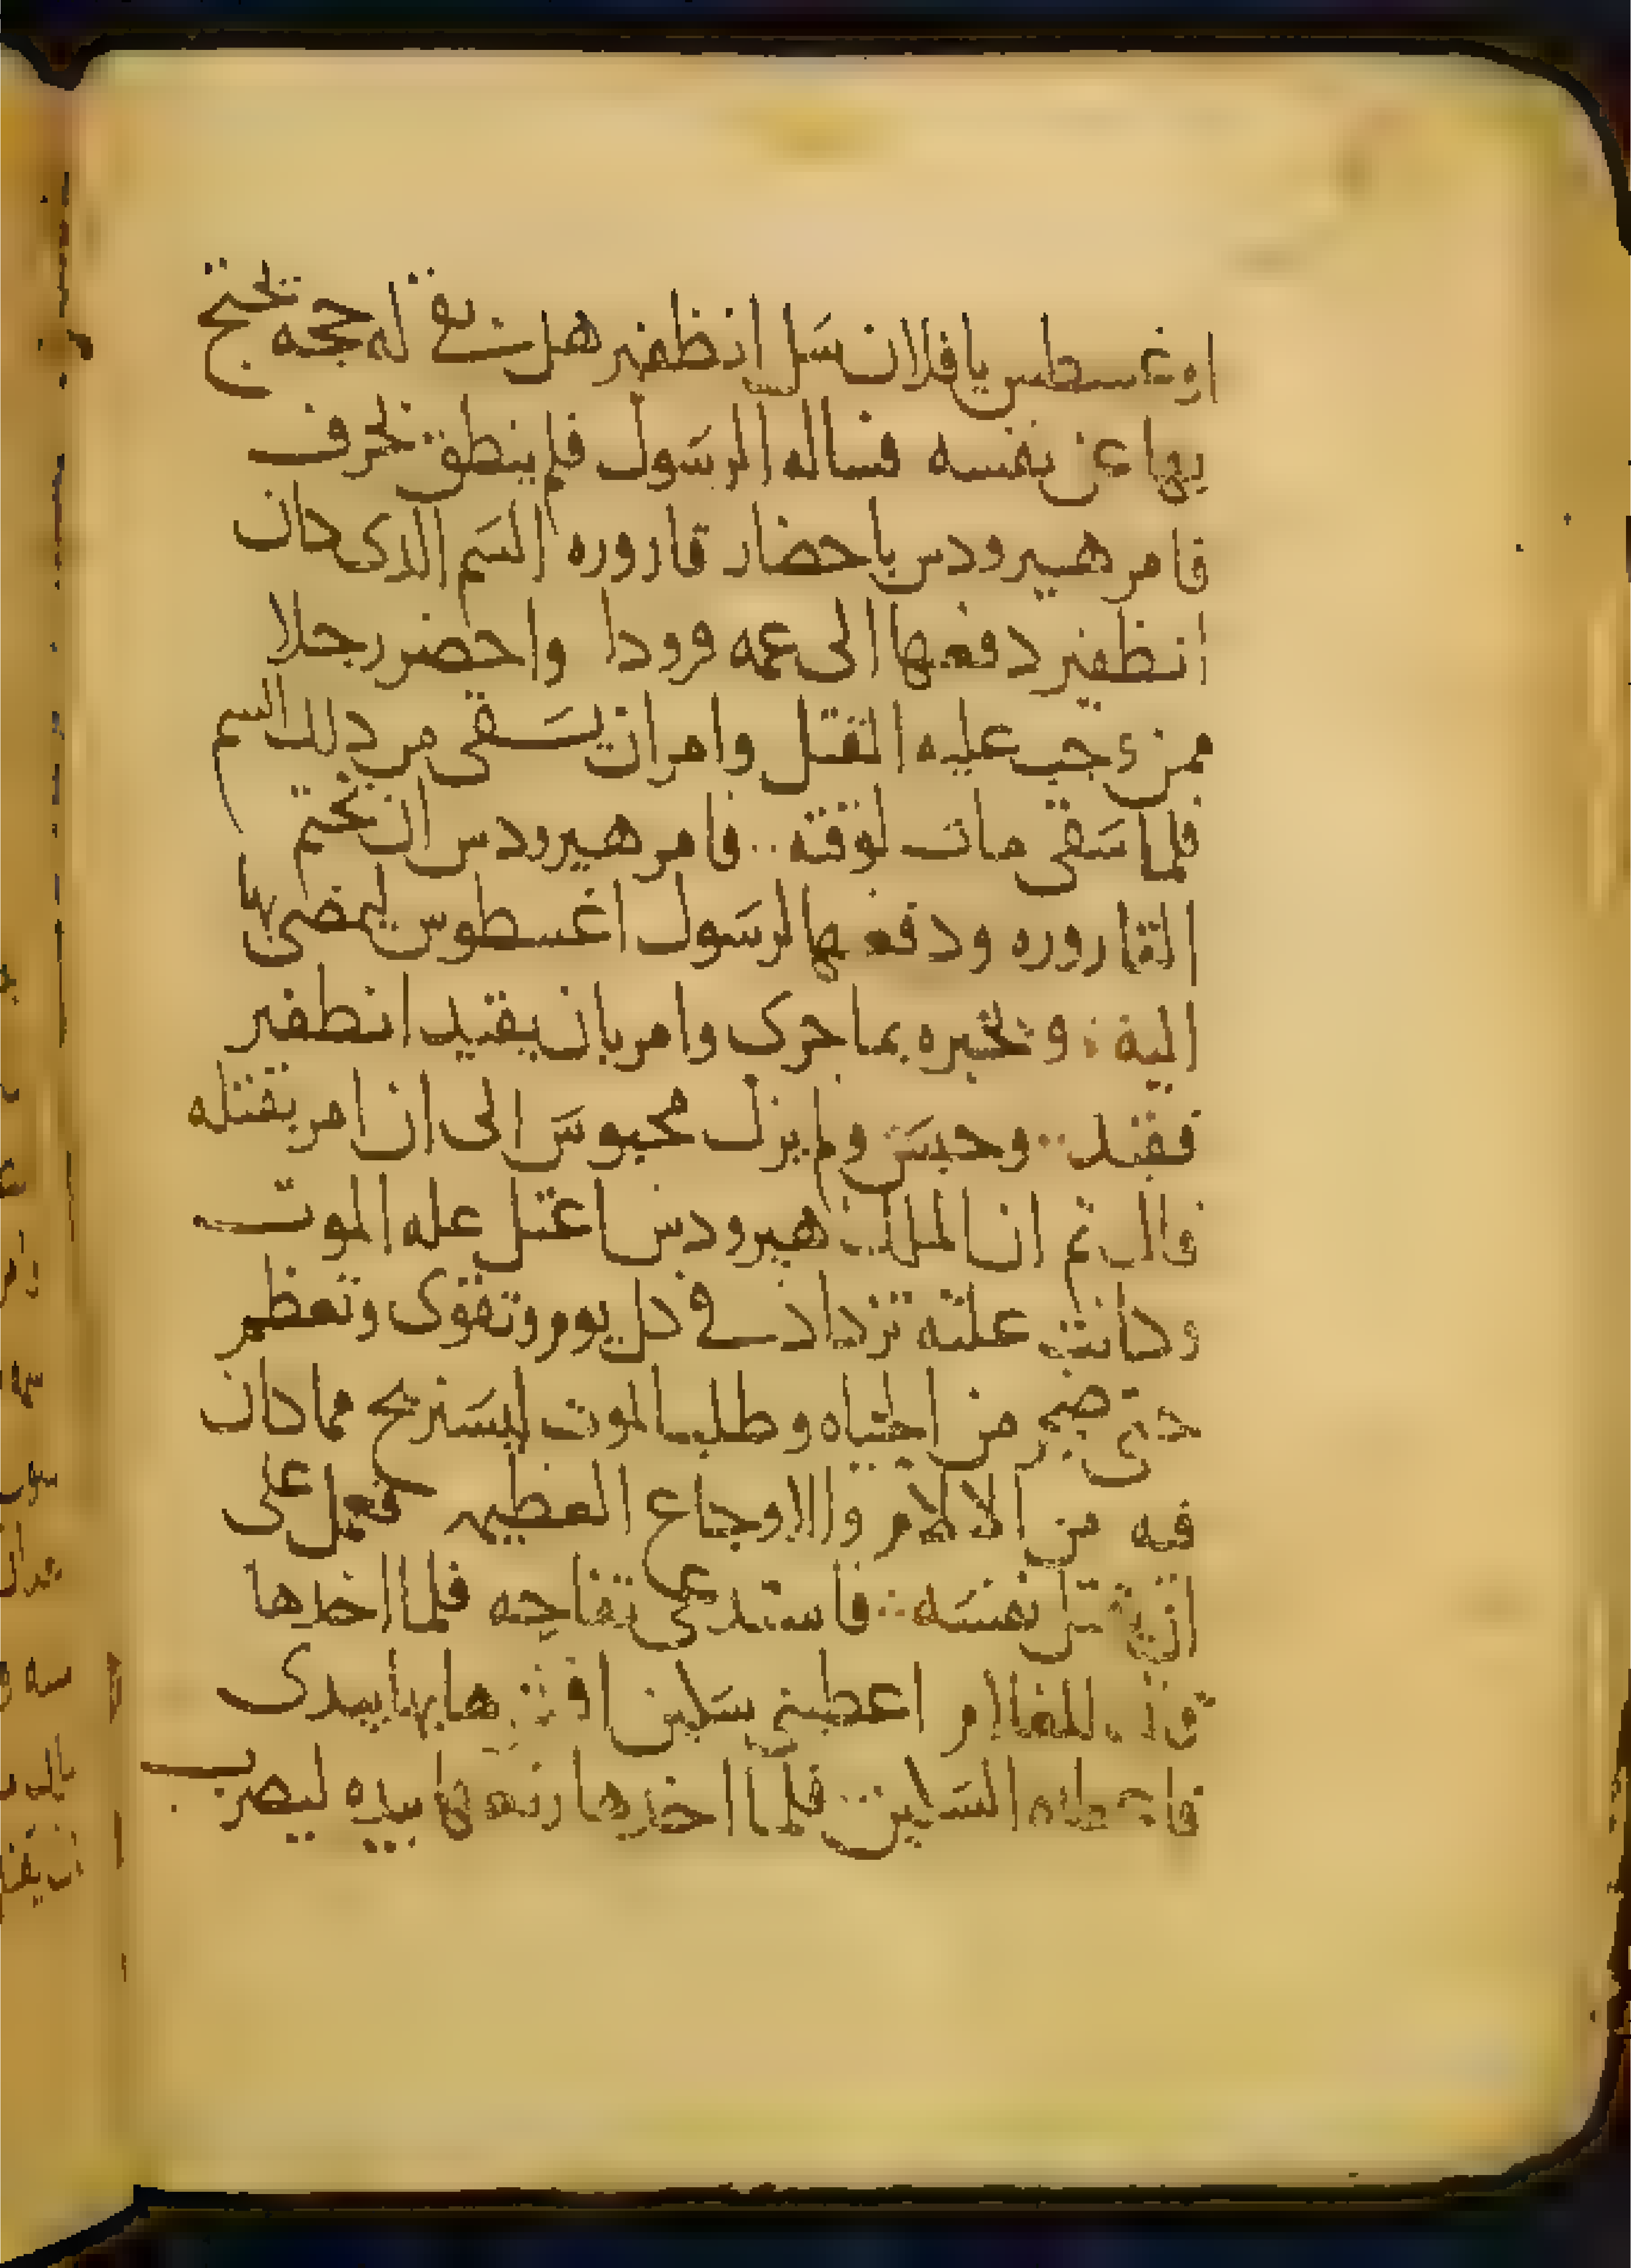 اوغسطس يا فلان سل انظفير هل بقى له حجه يحتج
بها عن نفسه فساله الرسول فلم ينطق بحرف
فامر هيرودس باحضار قاروره السم الدى كان
انظفير دفعها الى عمه فرودا واحضر رجلا
ممن وجب عليه القتل وامر ان يسقى من دلك السم
فلما سقى مات لوقته فامر هيرودس ان يختم
القاروره ودفعها لرسول اغسطوس ليمضى بها
اليه ويخبره بما جرى وامر بان يقيد انطفير
فقيد وحبس ولم يزل محبوس الى ان امر بقتله
قال ثم ان الملك هيرودس اعتل عله الموت
وكانت علته تزداد في كل يوم وتقوى وتعظم
حتى ضجر من الحياه وطلب الموت ليستريح مما كان
فيه من الالام والاوجاع العظيمه فعمل على
ان يقتل نفسه فاستدعى تفاحه فلما اخدها
قال للغلام اعطينى سكين اقشرها بها بيدى
فاعطاه السكين فلما اخدها رفعها بيده ليضرب